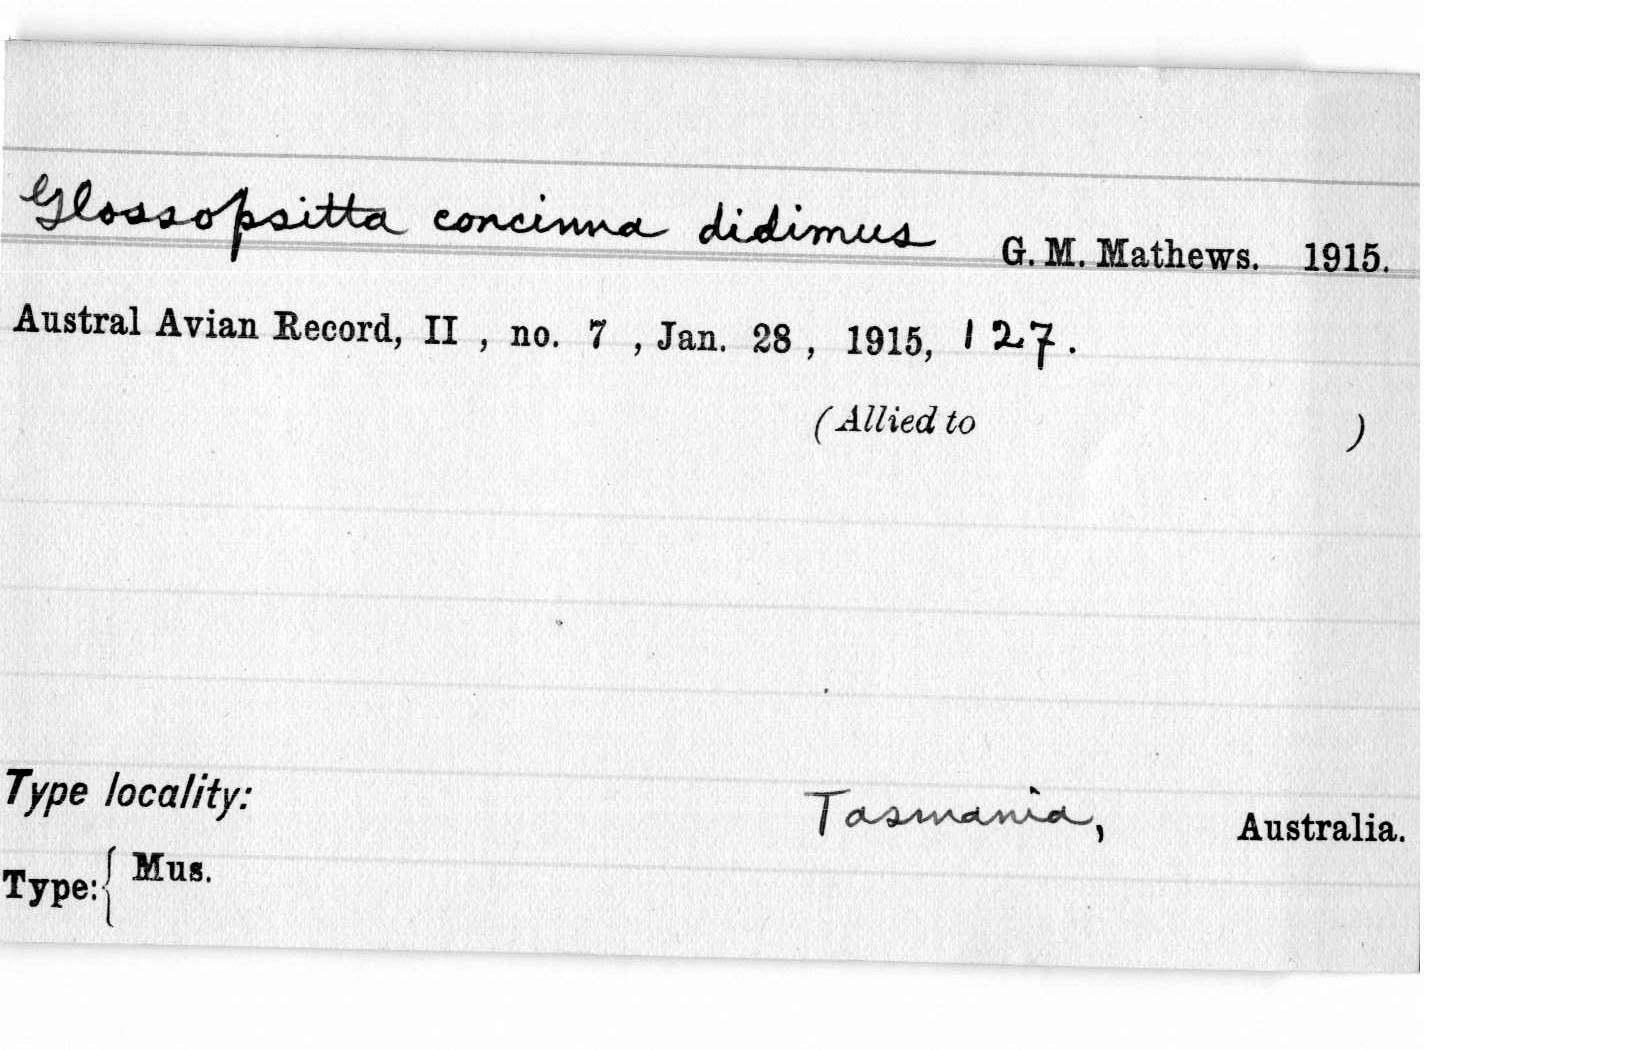 Glossopsitta concinna didimus G. M. Mathews. 1915.
Austral Avian Record, II , no. 7 , Jan. 28 , 1915, 127.
(Allied to )
Type locality: Tasmania, Australia.
Type:{ Mus.